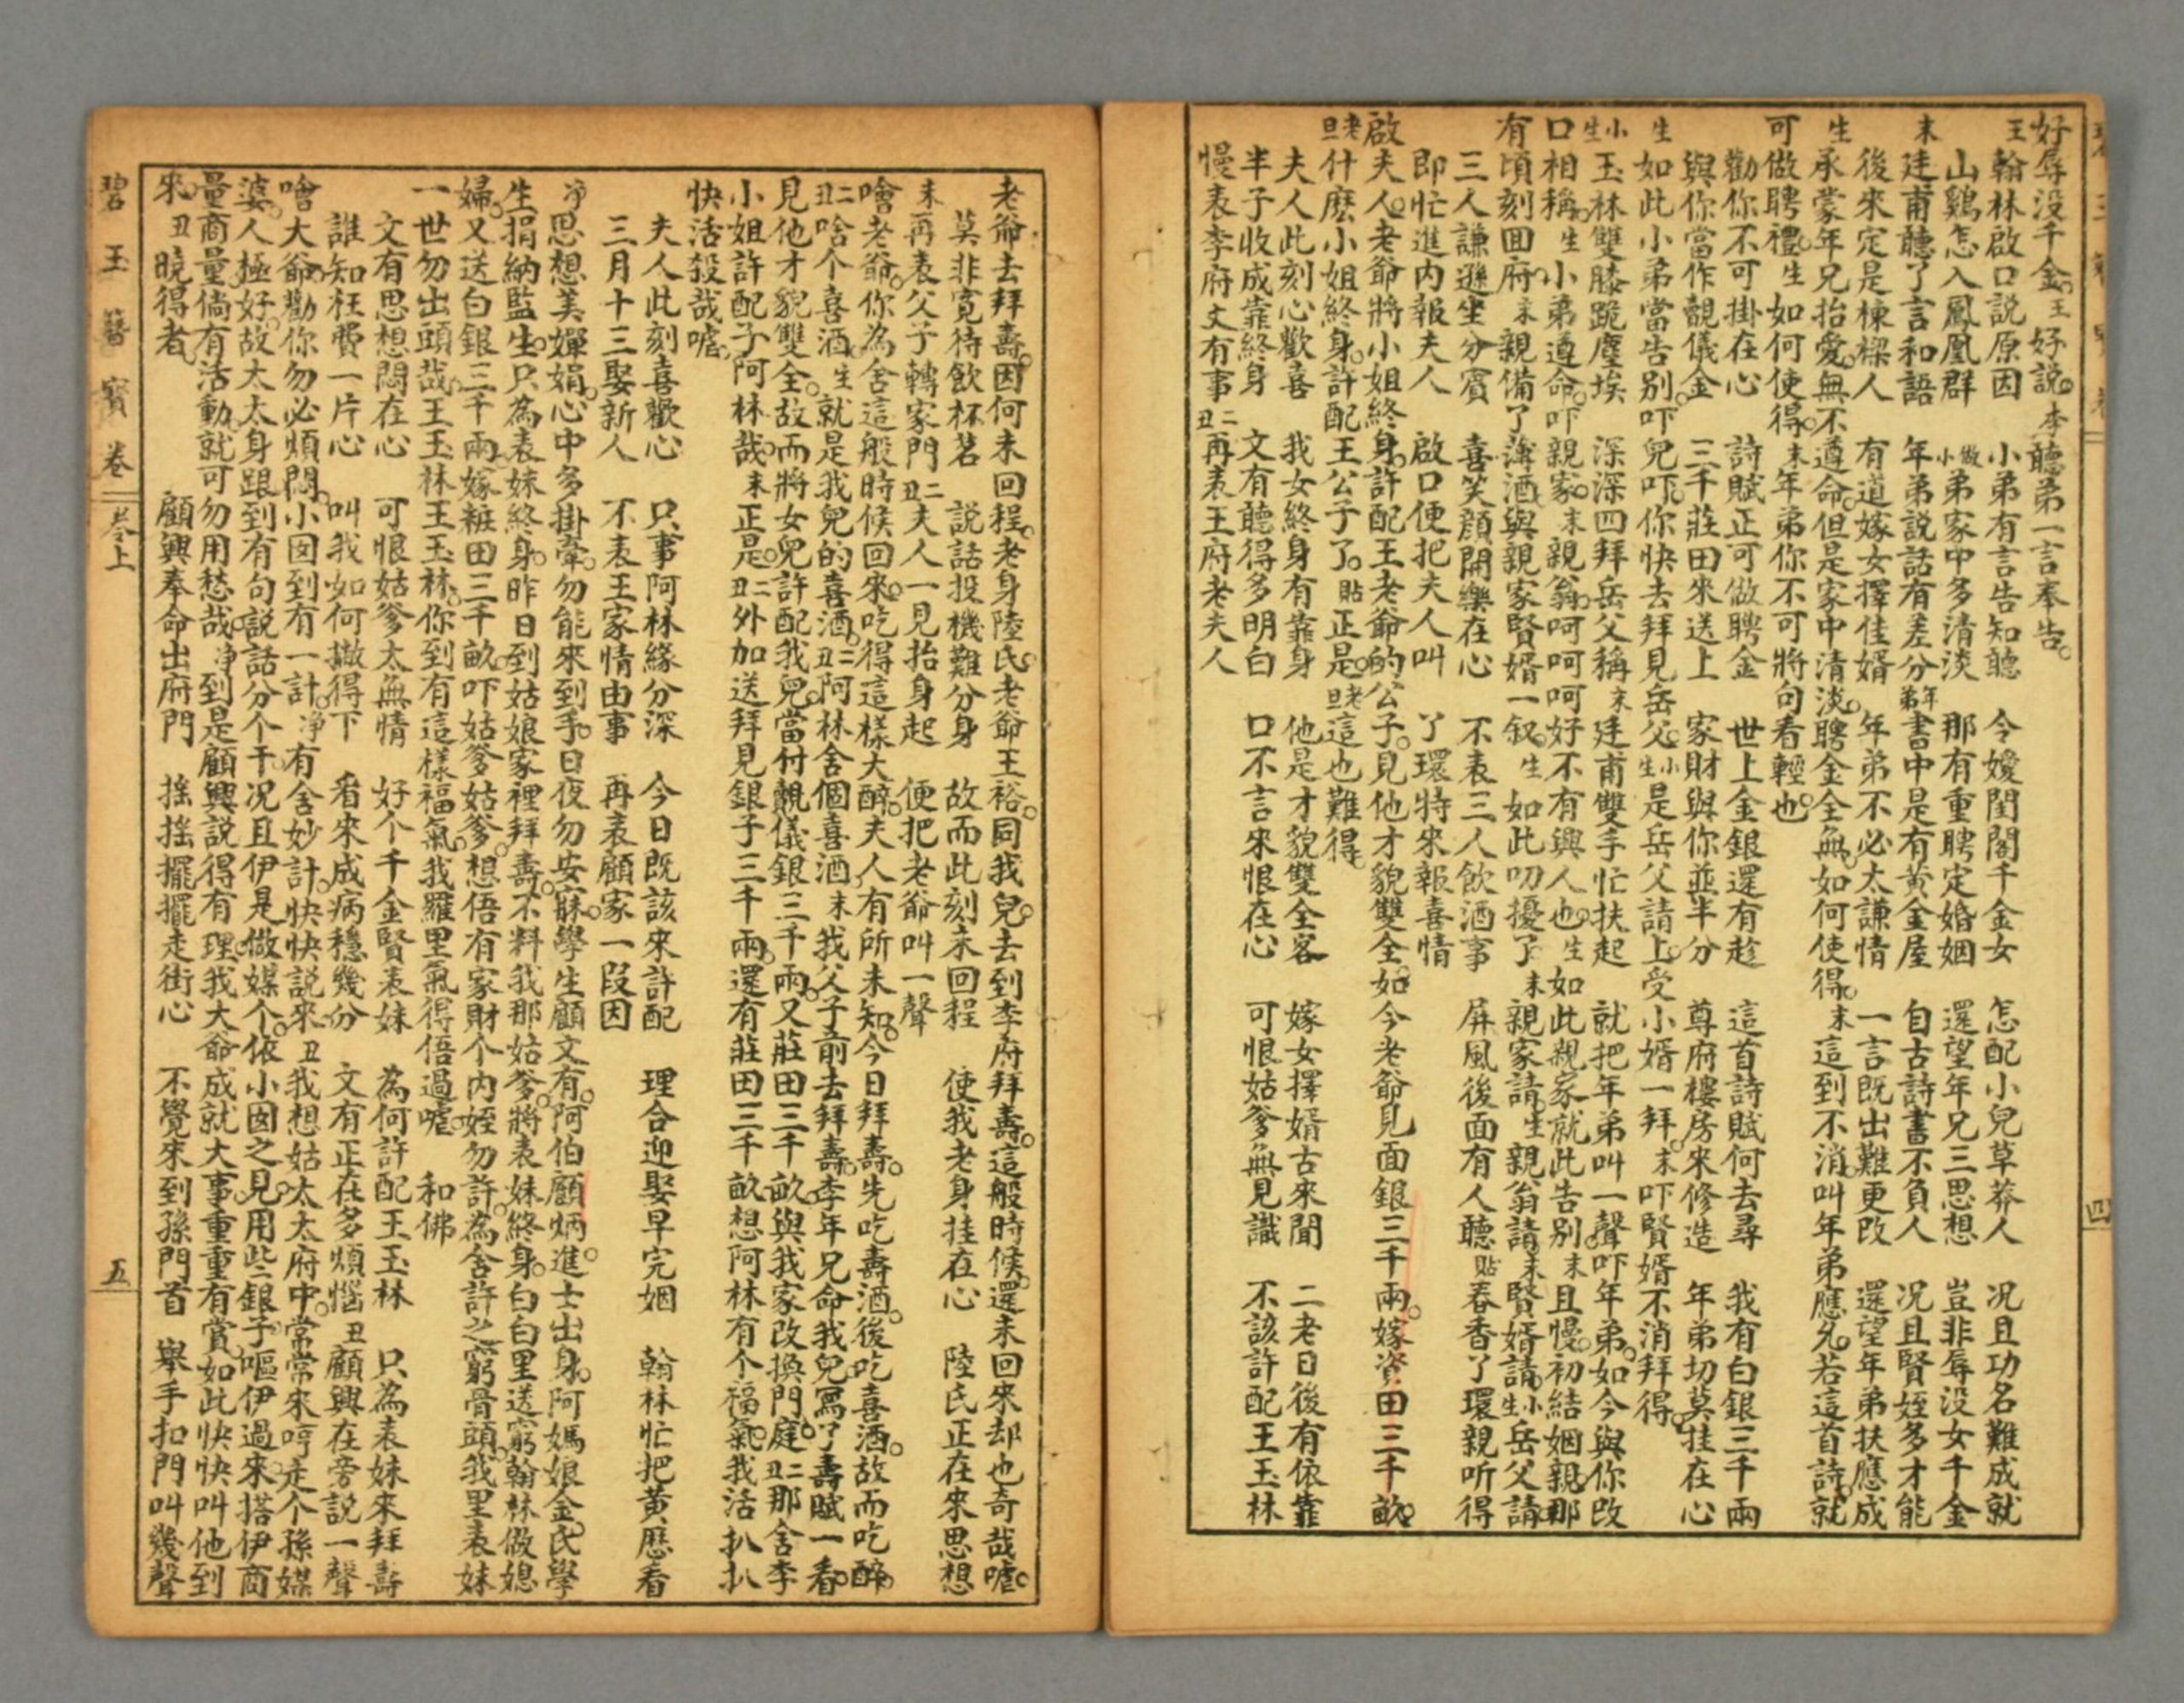 好辱没千金。王好説。李聽弟一言奉告。
王翰林啟口説原因 小弟有言告知聽 令嬡閨閣千金女 怎配小兒草莽人 况且功名難成就
山鷄怎入鳳凰群 做小弟家中多清淡 那有重聘定婚姻 還望年兄三思想 豈非辱没女千金
末廷甫聽了言和語 年弟説話有差分 年弟書中是有黄金屋 自古詩書不負人 况且賢姪多才能
後來定是棟樑人 有道嫁女擇佳婿 年弟不必太謙情 一言既出難更改 還望年弟扶應成
生承蒙年兄抬愛。無不遵命。但是家中清淡。聘金全無。如何使得。末這到不消。叫年弟應允。若這首詩。就
可做聘禮。生如何使得。末年弟你不可將句看輕也。
勸你不可掛在心 詩賦正可做聘金 世上金銀還有趁 這首詩賦何去尋 我有白銀三千兩
與你當作覿儀金 三千莊田來送上 家財與你並半分 尊府樓房來修造 年弟切莫挂在心
生如此小弟當告别。吓兒吓。你快去拜見岳父。小生是岳父請上。受小婿一拜。末吓賢婿不消拜得。
小生玉林雙膝跪塵埃 深深四拜岳父稱 末廷甫雙手忙扶起 就把年弟叫一聲 吓年弟。如今與你改
口相稱。生小弟遵命。吓親家。末親翁。呵呵呵好不有興人也。生如此親家就此告别。末且慢。初結姻親。那
有頃刻囬府。末親備了薄酒。與親家賢婿一叙。生如此叨擾了。末親家請。生親翁請。末賢婿請。小生岳父請
三人謙遜坐分賓 喜笑顔開樂在心 不表三人飲酒事 屏風後面有人聽 貼春香了環親听得
即忙進内報夫人 啟口便把夫人叫 了環特來報喜情
啟夫人。老爺將小姐終身。許配王老爺的公子。見他才貌雙全。如今老爺見面銀三千兩。嫁資田三千畝。
老旦什麽小姐終身。許配王公子了。貼正是。老旦這也難得。
夫人此刻心歡喜 我女終身有靠身 他是才貌雙全客 嫁女擇婿古來聞 二老日後有依靠
半子收成靠終身 文有聽得多明白 口不言來恨在心 可恨姑爹無見識 不該許配王玉林
慢表李府文有事 二丑再表王府老夫人
碧玉簪 寶卷
四
老爺去拜壽。因何未回程。老身陸氏。老爺王裕。同我兒。去到李府拜壽。這般時候。還未回來。却也奇哉嘘。
莫非寛待飲杯茗 説話投機難分身 故而此刻未回程 使我老身挂在心 陸氏正在來思想
末再表父子轉家門 二丑夫人一見抬身起 便把老爺叫一聲
噲老爺。你為舍這般時候回來。吃得這樣大醉。夫人有所未知。今日拜壽。先吃壽酒。後吃喜酒。故而吃醉。
二丑啥个喜酒。生就是我兒的喜酒。二丑阿林舍個喜酒。末我父子前去拜壽。李年兄命我兒寫了壽賦一看。
見他才貌雙全。故而將女兒許配我兒。當付覿儀銀三千兩。又莊田三千畝。與我家改換門庭。二丑那舍李
小姐許配子阿林哉。末正是。二丑外加送拜見銀子三千兩。還有莊田三千畝。想阿林有个福氣。我活扒扒
快活殺哉嘘。
夫人此刻喜歡心 只事阿林緣分深 今日既該來許配 理合迎娶早完姻 翰林忙把黄歷看
三月十三娶新人 不表王家情由事 再表顧家一段因
净思想美嬋娟。心中多掛牽。勿能來到手。日夜勿安寐。學生顧文有。阿伯顧炳。進士出身。阿媽娘金氏。學
生捐納監生。只為表妹終身。昨日到姑娘家裡拜壽。不料我那姑爹。將表妹終身。白白里送窮翰林做媳
婦。又送白銀三千兩。嫁粧田三千畝。吓姑爹姑爹。想偌有家財个内姪勿許。為舍許之窮骨頭。我里表妹
一世勿出頭哉。王玉林王玉林。你到有這樣福氣。我羅里氣得偌過嘘。 和佛
文有思想悶在心 可恨姑爹太無情 好个千金賢表妹 為何許配王玉林 只為表妹來拜壽
誰知枉費一片心 叫我如何撇得下 看來成病穩幾分 文有正在多煩惱 丑顧興在旁説一聲
噲大爺。勸你勿必煩悶。小囡到有一計。净有舍妙計。快快説來。丑我想姑太太府中。常常來哼走个孫媒
婆。人極好。故太太身跟。到有句説話分个干。况且伊是做媒个。依小囡之見。用些銀子。嘔伊過來。搭伊商
量商量。倘有活動。就可勿用愁哉。净到是顧興説得有理。我大爺成就大事。重重有賞。如此快快叫他到
來。丑曉得者。 顧興奉命出府門 摇摇擺擺走街心 不覺來到孫門首 舉手扣門叫幾聲
碧玉簪寶卷 卷上
五